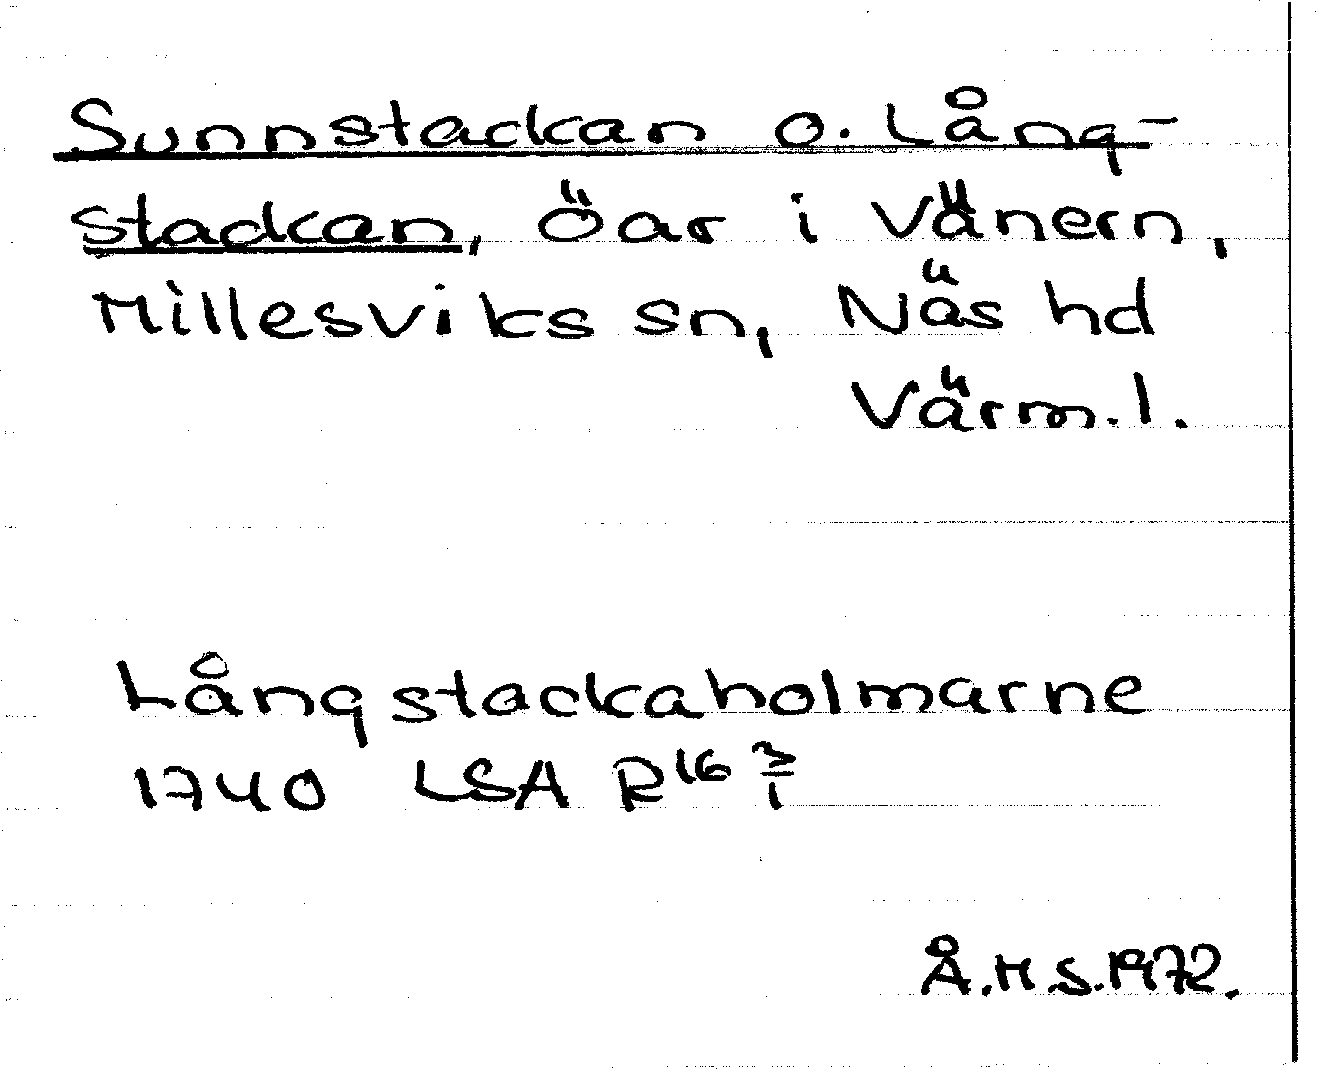 Sunnstackan o. Lång-
stackan, öar i Vänern,
Millesviks sn, Näs hd
Värm. l.
Långstackaholmarne
1740 LSA R16 3/1
Å.H.S.1972.